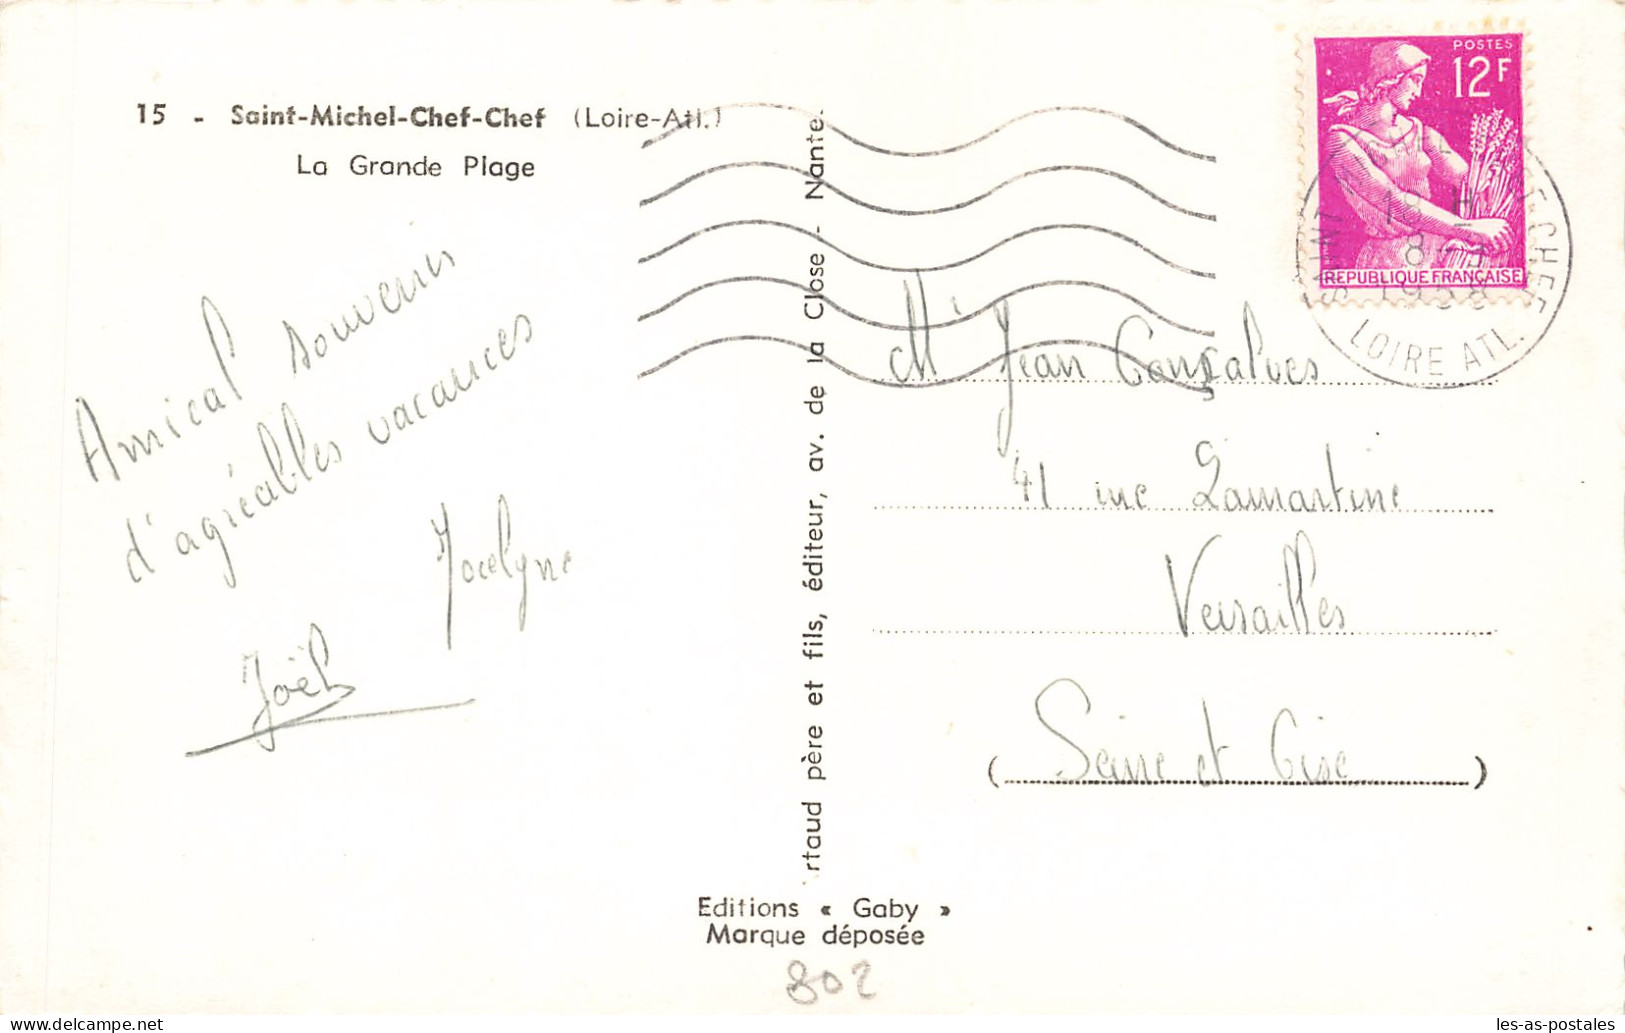 15 - Saint-Michel-Chef-Chef (Loire-Atl.)
La Grande Plage
Amical souvenir
d'agréables vacances
Jocelyne
Joël
rtaud père et fils, éditeur, av. de la Close - Nante.
Editions « Gaby »
Marque déposée
802
POSTES
12F
REPUBLIQUE FRANÇAISE
18 H
8
1958
LOIRE ATL.
Mr Jean Gonçalves
41 rue Lamartine
Versailles
(Seine et Oise)
les-as-postales.com